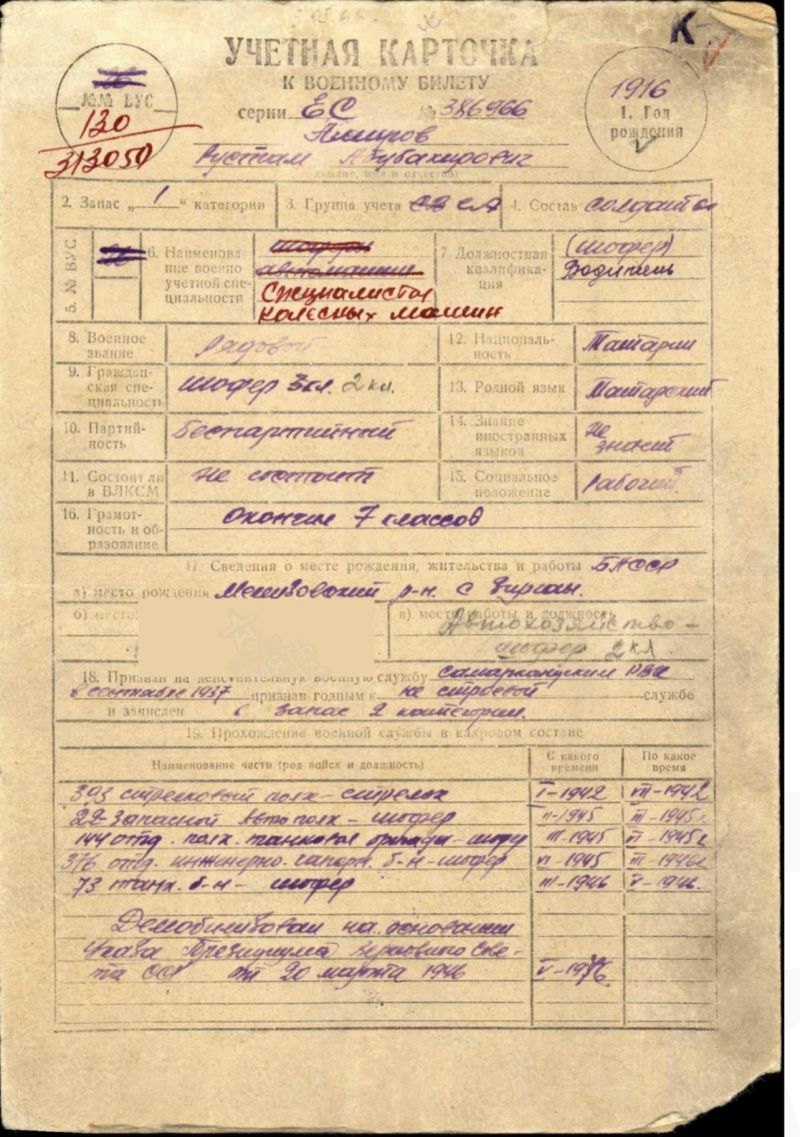 К
УЧЕТНАЯ КАРТОЧКА
К ВОЕННОМУ БИЛЕТУ
серии ЕС № 386966
№№ ВУС
130
313050
1916
1. Год
рождения
Амиров
Рустам Абубакирович
2. Запас „ 1 “ категории
3. Группа учета СА
4. Состав солдаты
5. № ВУС
6. Наименова-
ние военно
учетной спе-
циальности
шофер
автомашины
Специалисты
колесных машин
7 Должностная
квалифика-
ция
(шофер)
Водитель
8. Военное
звание
Рядовой
12. Националь-
ность
Татарин
9. Граждан-
ская спе-
циальность
шофер 3 кл. 2 кл.
13. Родной язык
Татарский
10. Партий-
ность
Беспартийный
14. Знание
иностранных
языков
Не
знает
11. Состоит ли
в ВЛКСМ
Не состоит
15. Социальное
положение
Рабочий
16. Грамот-
ность и об-
разование
Окончил 7 классов
17. Сведения о месте рождения, жительства и работы БАССР
а) место рождения Мелеузовский р-н. с Зирган.
б) место
в) место работы и должность
Автохозяйство -
шофер 2 кл
18. Признан на действительную военную службу Самаркандским РВК
в сентябре 1937 признан годным к не строевой службе
и зачислен в запас 2 категории.
19. Прохождение военной службы в кадровом составе
Наименование части (род войск и должность)
С какого
времени
По какое
время
393 стрелковый полк - стрелок I-1942 VII-1942
22 запасной автополк - шофер II-1945 III-1945г.
144 отд. полк. танковая бригады - шофер III-1945 VI-1945г
376 отд. инженерно. саперн. б-н - шофер VI-1945 III-1946г
73 танк. б-н - шофер III-1946 V-1946.
Демобилизован на основании
Указа Президиума Верховного Сове-
та ССР от 20 марта 1946 V-1946.